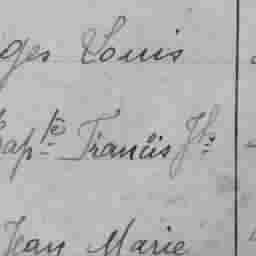 ges Louis
Bapte Francis Jh
Jean Marie